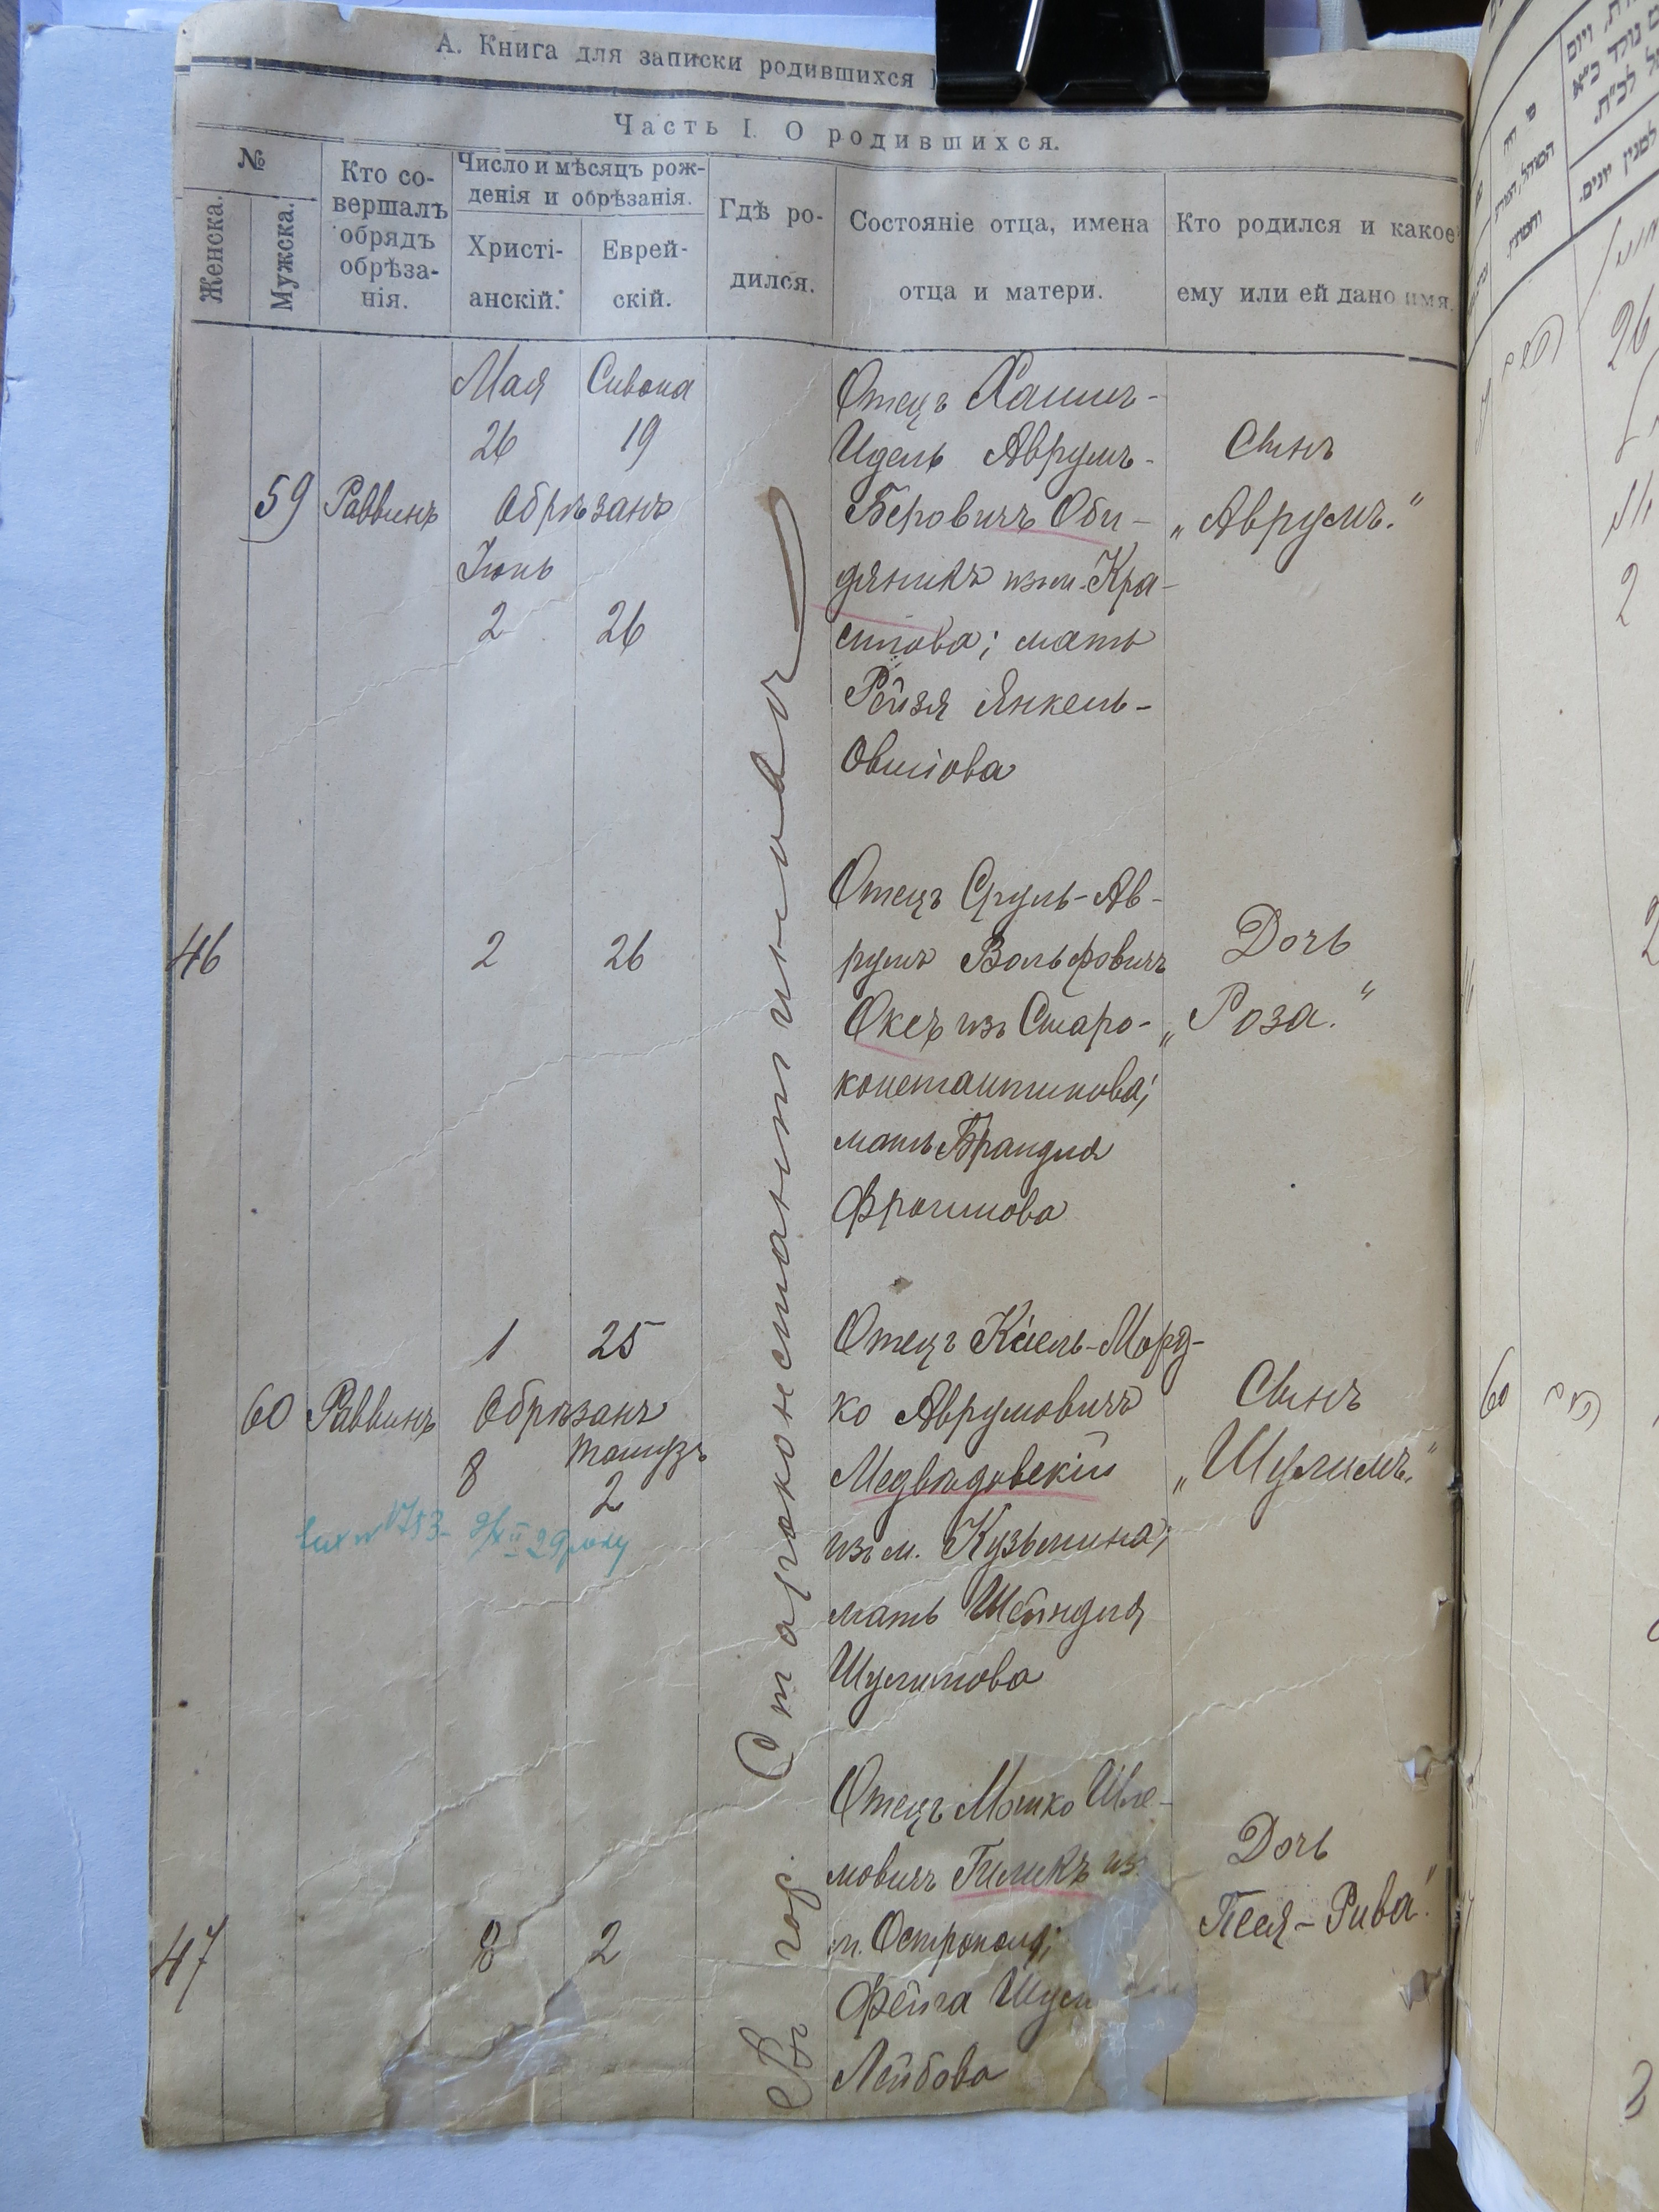 А. Книга для записки родившихся
Часть I. О родившихся.
№
Женска.
Мужска.
Кто со-
вершалъ
обрядъ
обрѣза-
нія.
Число и мѣсяцъ рож-
денія и обрѣзанія.
Христі-
анскій.
Еврей-
скій.
Гдѣ ро-
дился.
Состояніе отца, имена
отца и матери.
Кто родился и какое
ему или ей дано имя.
Въ гор. Староконстантиновѣ
59
Раввинъ
Мая Сивона
26 19
Обрѣзанъ
Іюнь
2 26
Отецъ Хаимъ-
Идель Аврумъ-
Беровичъ Оби-
дяникъ изъ м. Кра-
силова; мать
Рейзя Янкель-
Овшіова
Сынъ
„Аврумъ.“
46
2 26
Отецъ Сруль-Ав-
румъ Вольфовичъ
Окс изъ Старо-
константинова;
мать Брандля
Фроимова
Дочь
„Роза.“
60
Раввинъ
1 25
Обрѣзанъ
8 Тамузъ
2
29 року
Отецъ Кисель-Морд-
ко Аврумовичъ
Медвѣдовскій
изъ м. Кузьмина;
мать Шейндля
Шулимова
Сынъ
„Шулимъ.“
47
8 2
Отецъ Мошко Шле-
мовичъ Гиликъ из
м. Острополя;
Фейга Шул
Лейбова
Дочь
Песя-Рива“
60
26
2